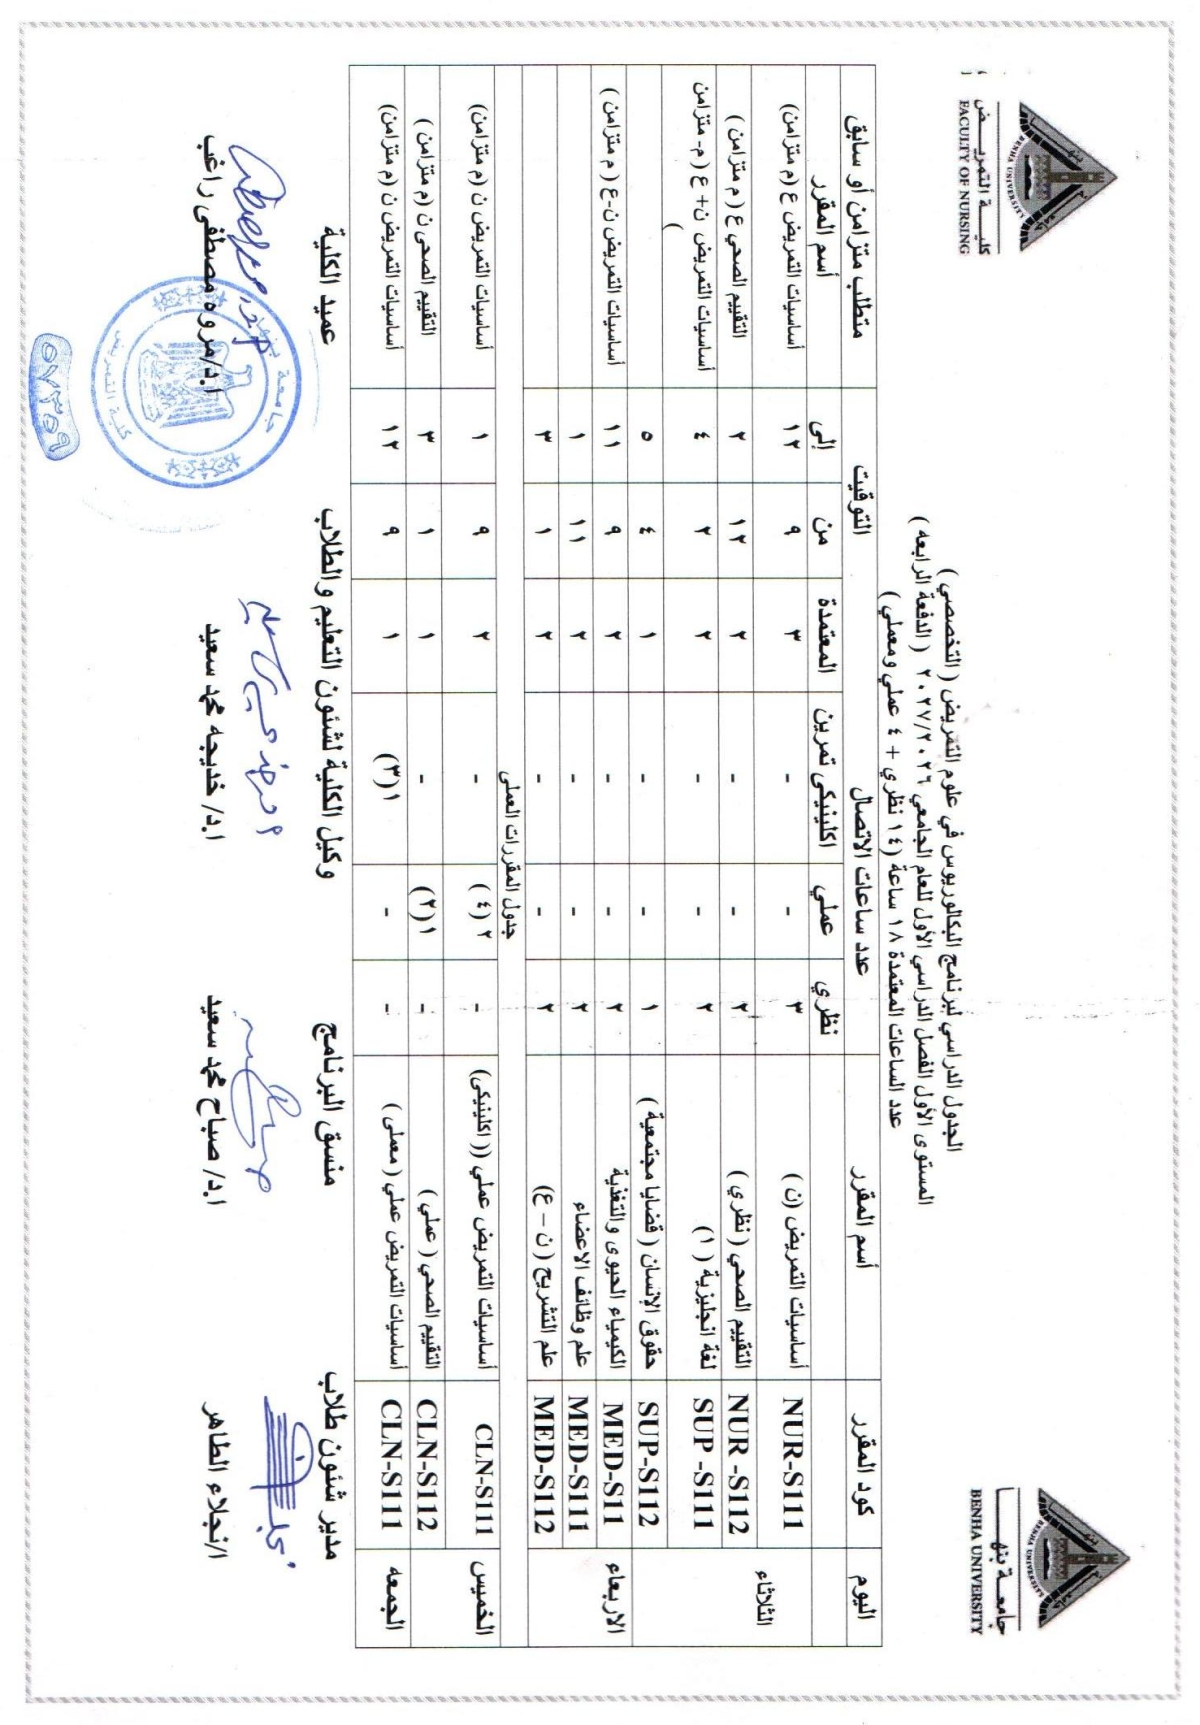 جامعة بنها
BENHA UNIVERSITY
كلية التمريض
FACULTY OF NURSING
الجدول الدراسي لبرنامج البكالوريوس في علوم التمريض ( التخصصي )
المستوى الأول الفصل الدراسي الأول للعام الجامعي ٢٠٢٦/٢٠٢٧ ( الدفعة الرابعه )
عدد الساعات المعتمدة ١٨ ساعة (١٤ نظري + ٤ عملي ومعملي )
اليوم كود المقرر أسم المقرر عدد ساعات الاتصال التوقيت متطلب متزامن أو سابق
نظري عملي اكلينيكى تمرين المعتمدة من إلى أسم المقرر
الثلاثاء NUR-S111 أساسيات التمريض (ن) ٣ - - ٣ ٩ ١٢ أساسيات التمريض ع (م متزامن)
NUR -S112 التقييم الصحي ( نظري ) ٢ - - ٢ ١٢ ٢ التقييم الصحي ع ( م متزامن )
SUP -S111 لغة انجليزية ( ١ ) ٢ - - ٢ ٢ ٤ أساسيات التمريض ن+ ع ( م- متزامن )
SUP-S112 حقوق الإنسان ( قضايا مجتمعية ) ١ - - ١ ٤ ٥
الاربعاء MED-S11 الكيمياء الحيوى والتغذية ٢ - - ٢ ٩ ١١ أساسيات التمريض ن-ع ( م متزامن )
MED-S111 علم وظائف الاعضاء ٢ - - ٢ ١١ ١
MED-S112 علم التشريح ( ن – ع) ٢ - - ٢ ١ ٣
جدول المقررات العملى
الخميس CLN-S111 أساسيات التمريض عملي (( اكلينيكى) - ٢ ( ٤ ) - ٢ ٩ ١ أساسيات التمريض ن (م متزامن)
CLN-S112 التقييم الصحي ( عملي ) - ١(٢) - ١ ١ ٣ التقييم الصحى ن (م متزامن )
الجمعه CLN-S111 أساسيات التمريض عملي ( معملى ) - - ١(٣) ١ ٩ ١٢ أساسيات التمريض ن (م متزامن)
مدير شئون طلاب منسق البرنامج وكيل الكلية لشئون التعليم والطلاب عميد الكلية
ا/نجلاء الطاهر ا.د/ صباح محمد سعيد ا.د/ خديجه محمد سعيد ا.د/مروه مصطفى راغب